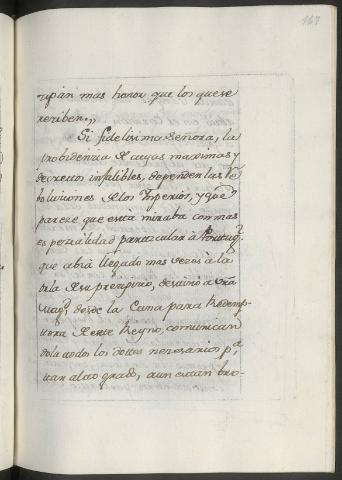 167
zipan mas honor, que los que se
reciben.,,
Si fidelisima Señora, la
probidencia de cuyas maximas y
decretos infalibles, dependen las re
boluciones de los Imperios, y que
parece que esta miraba con mas
espezialidad particular à Portugl.
que abia llegado mas vezes à la
orla de su prezipizio, destinò à vra
Magd. desde la Cuna para Redemp
tora de este Reyno, comunican
dola todos los dotes necesarios pa.
tan alto grado, aun estan bro-